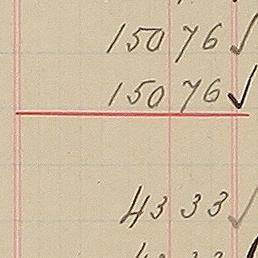 150 76 ✓
150 76 ✓
43 33 ✓